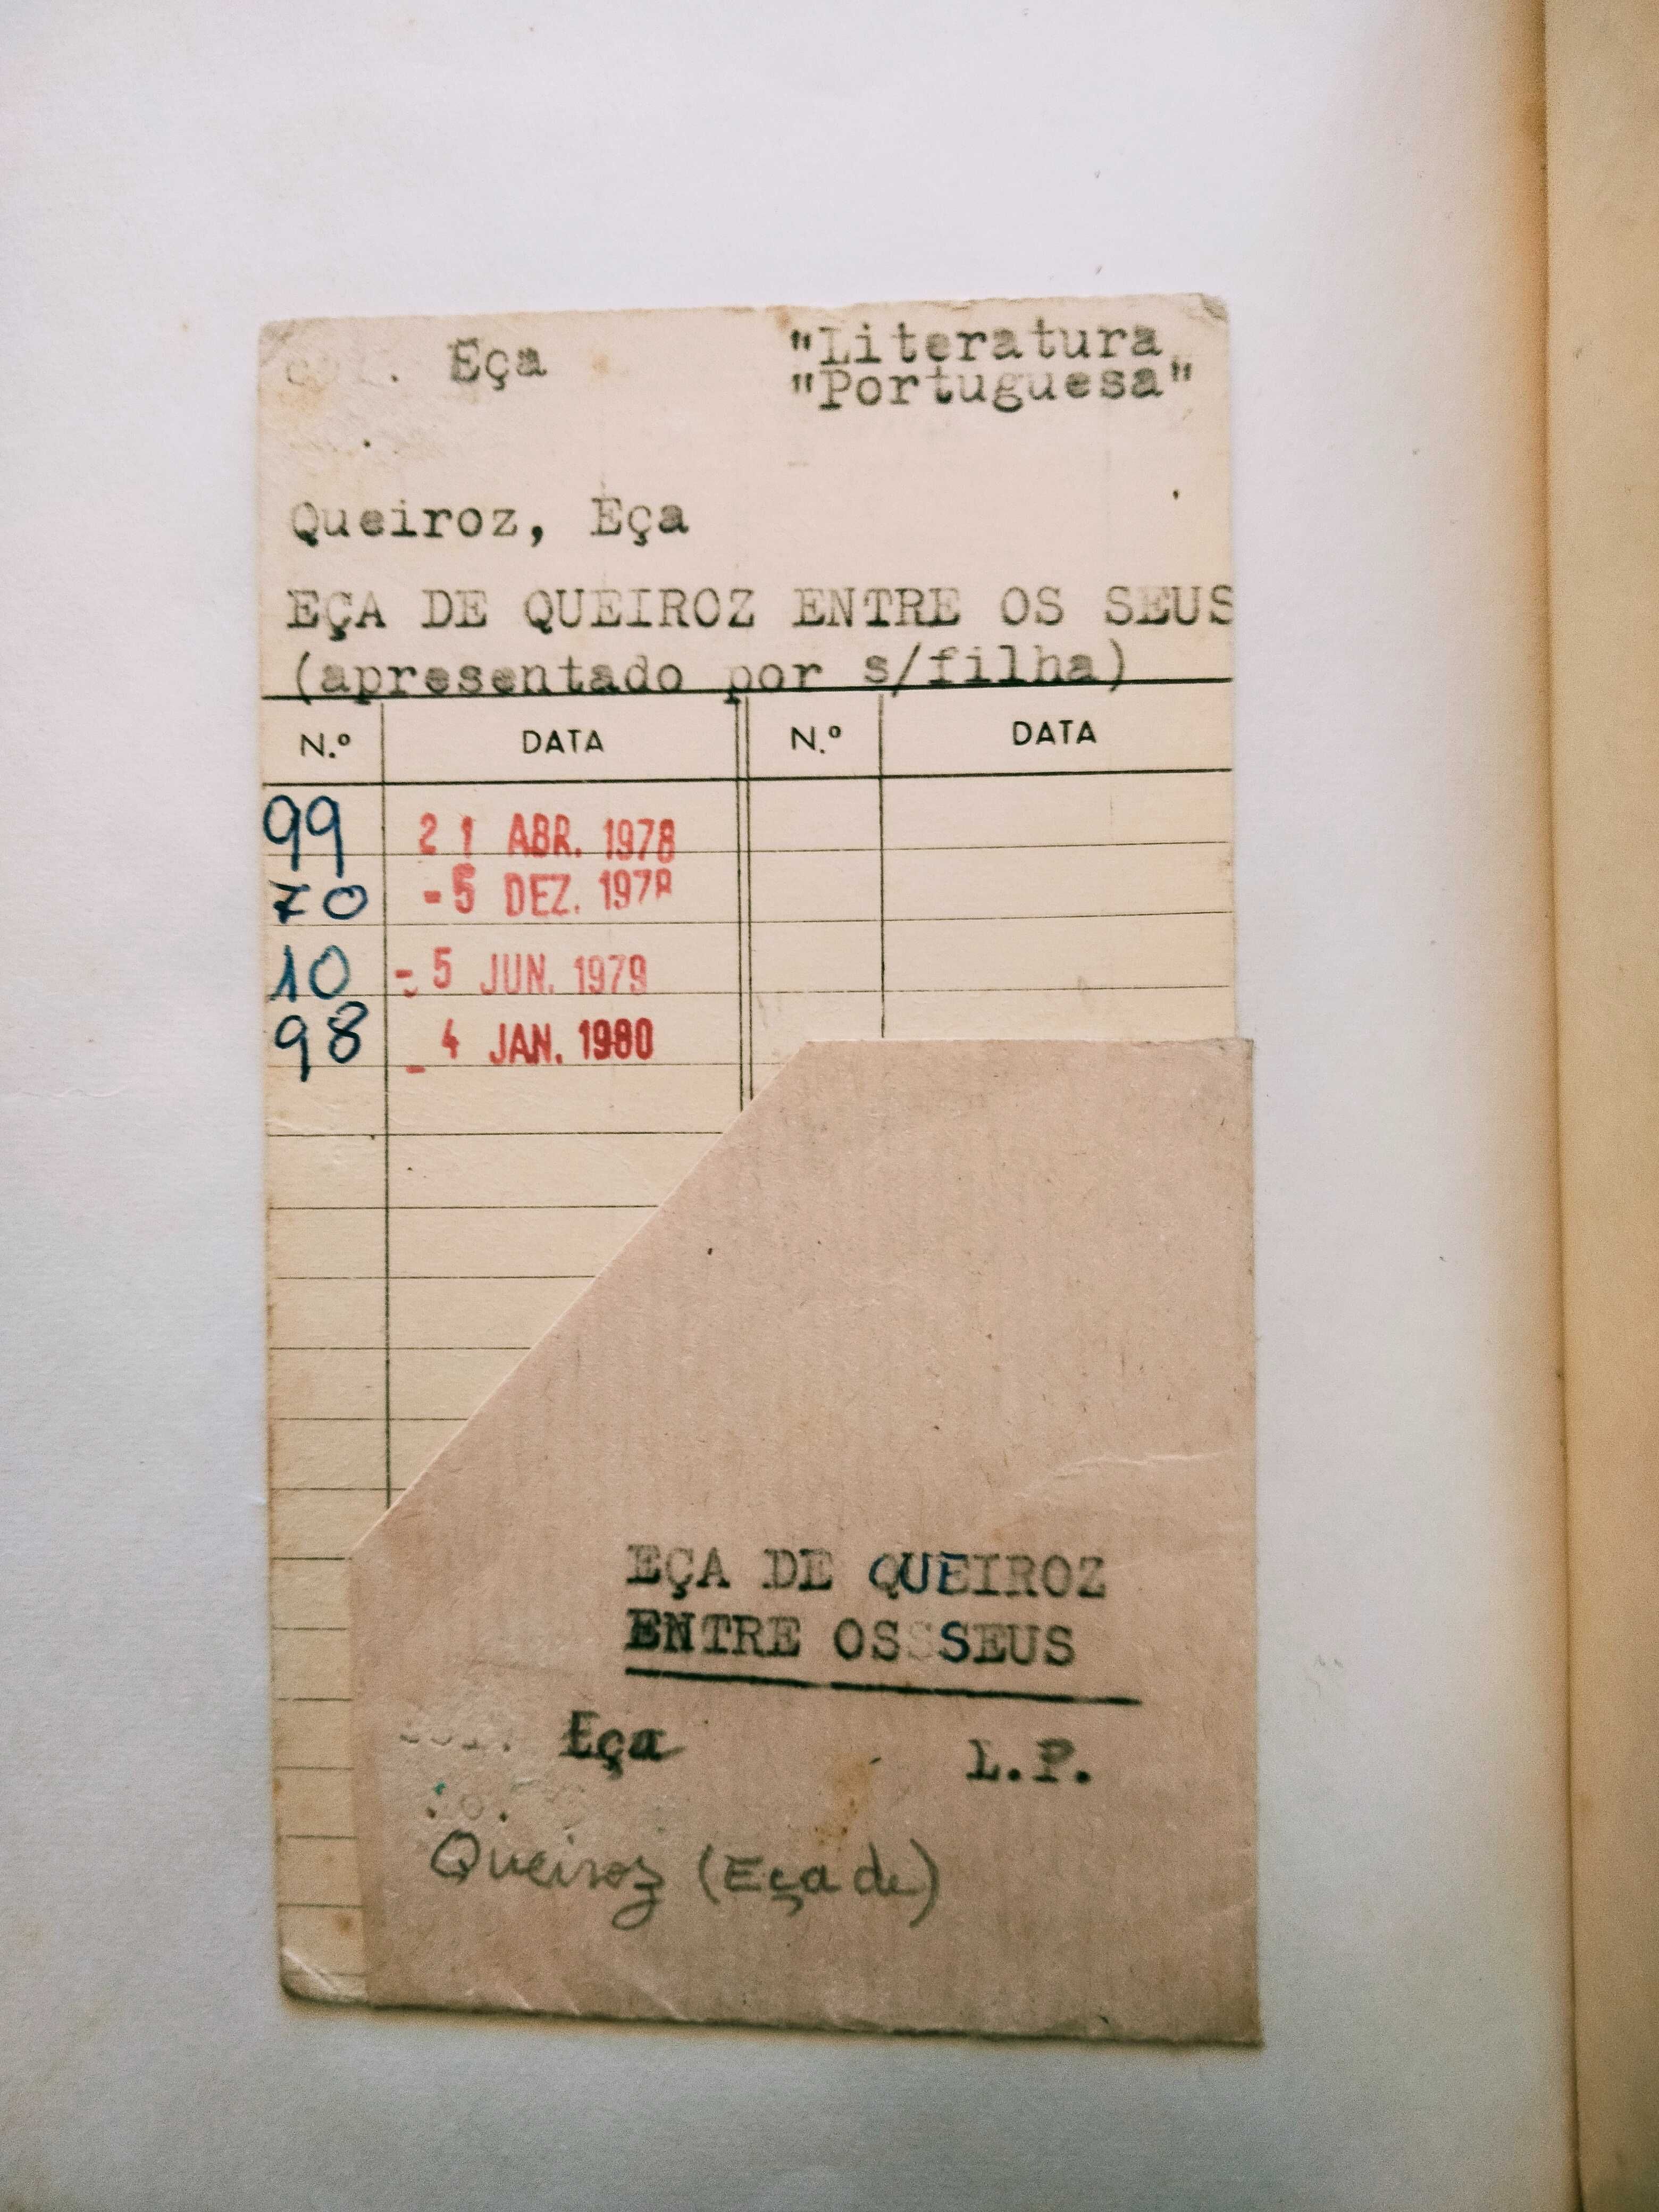 Eça "Literatura
"Portuguesa"
Queiroz, Eça
EÇA DE QUEIROZ ENTRE OS SEUS
(apresentado por s/filha)
N.º DATA N.º DATA
99 21 ABR. 1978
70 -5 DEZ. 1978
10 -5 JUN. 1979
98 _ 4 JAN. 1980
EÇA DE QUEIROZ
ENTRE OSSSEUS
Eça L.P.
Queiroz (Eça de)